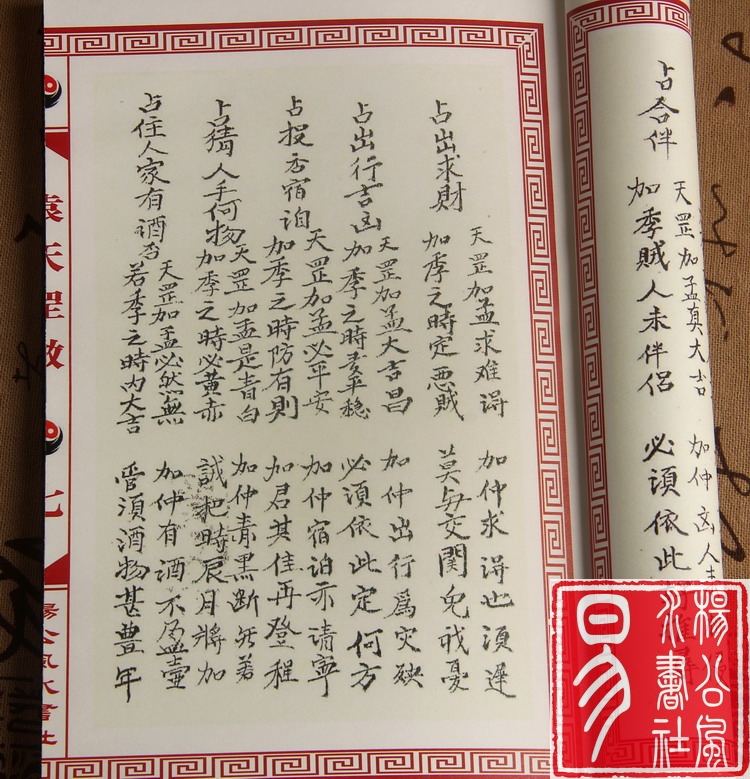 占合伴
天罡加孟真大吉
加仲凶人
加季賊人未伴侣
必須依此
占出求財
天罡加孟求难得
加仲求得也須遲
加季之時定惡賊
莫与交関免我憂
占出行吉凶
天罡加孟大吉昌
加仲出行為灾殃
加季之時麦平穩
必須依此定何方
占投否宿泊
天罡加孟必平安
加仲宿泊亦请寧
加季之時防有則
加君其住再登程
占猜人手何物
天罡加孟是青白
加仲青黑断
加季之時必黄赤
誠把時辰月將加
占住人家有酒否
天罡加孟必然無
加仲有酒不盈壶
若季之時内大吉
管須酒物甚豊年
袁天罡数
七
楊公風水書社
易
楊公風水書社